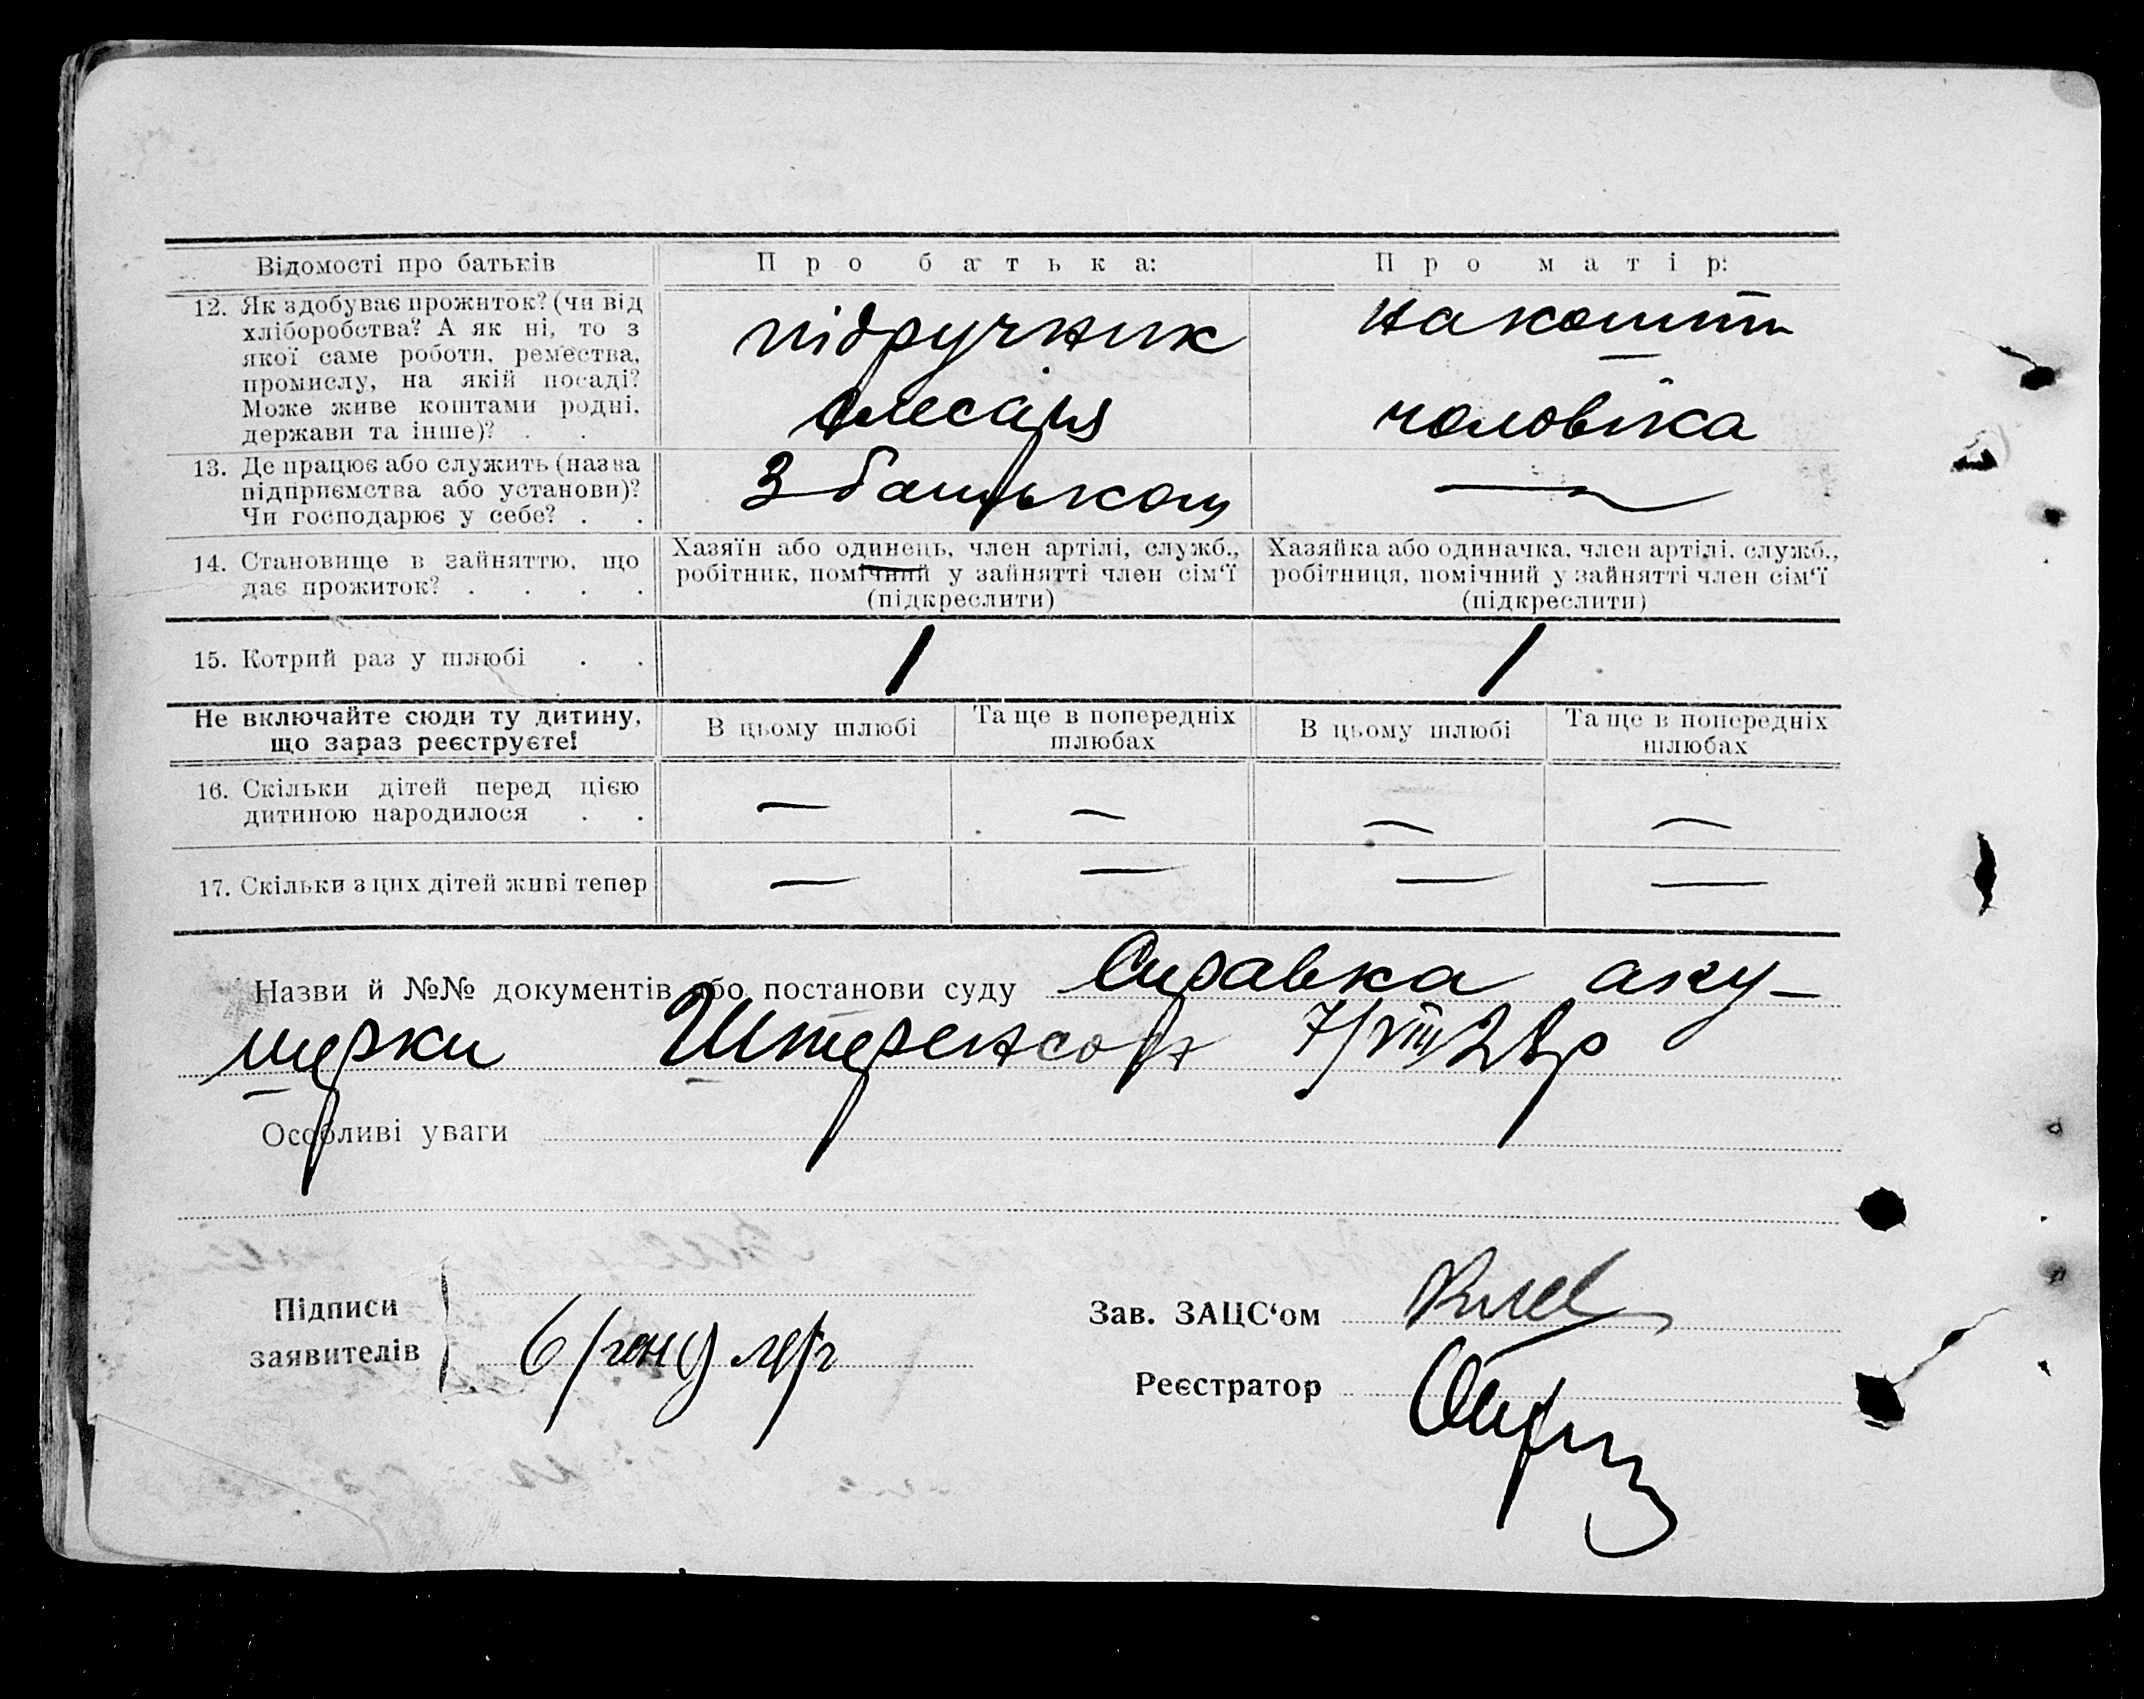 Відомості про батьків
Про батька:
Про матір:
12. Як здобуває прожиток? (чи від
хліборобства? А як ні, то з
якої саме роботи, ремества,
промислу, на якій посаді?
Може живе коштами родні,
держави та інше)? . .
підручник
слесаря
на кошти
чоловіка
13. Де працює або служить (назва
підприємства або установи)?
Чи господарює у себе? . .
З батьком
—
14. Становище в зайняттю, що
дає прожиток? . . . .
Хазяїн або одинець, член артілі, служб.,
робітник, помічний у зайнятті член сім‘ї
(підкреслити)
Хазяйка або одиначка, член артілі, служб.,
робітниця, помічний у зайнятті член сім‘ї
(підкреслити)
15. Котрий раз у шлюбі . .
1
1
Не включайте сюди ту дитину,
що зараз реєструєте!
В цьому шлюбі
Та ще в попередніх
шлюбах
В цьому шлюбі
Та ще в попередніх
шлюбах
16. Скільки дітей перед цією
дитиною народилося . .
— — — —
17. Скільки з цих дітей живі тепер
— — — —
Назви й №№ документів або постанови суду Справка аку-
шерки Штеренсон 7/VIII 28р
Особливі уваги
Підписи
заявителів
Зав. ЗАЦС‘ом
Реєстратор